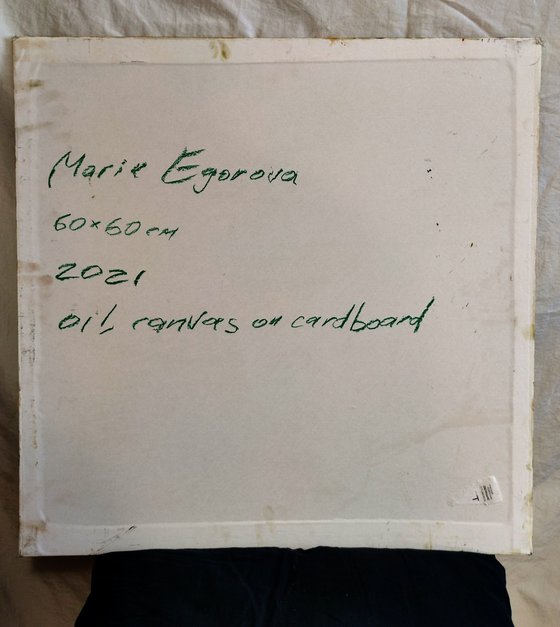 Marie Egorova
60×60 cm
2021
oil, canvas on cardboard